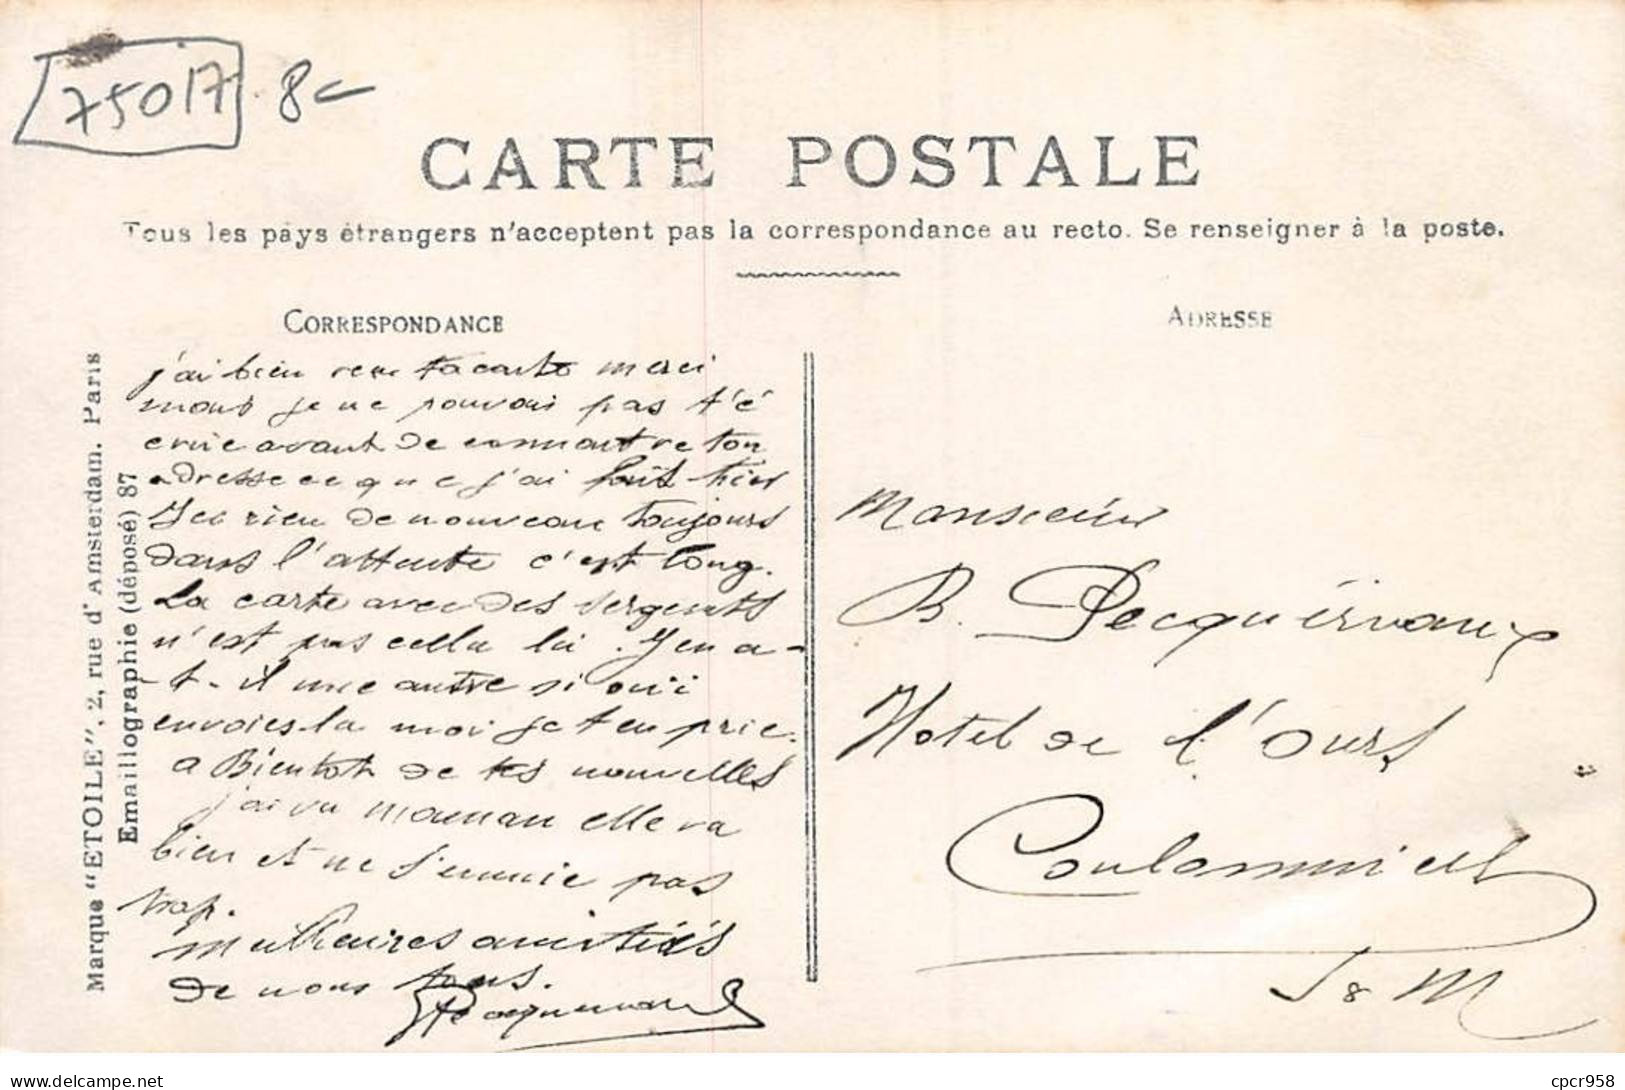 75017 8
CARTE POSTALE
Tous les pays étrangers n'acceptent pas la correspondance au recto. Se renseigner à la poste.
CORRESPONDANCE
ADRESSE
Marque "ETOILE", 2, rue d'Amsterdam. Paris
Emaillographie (déposé) 87
j'ai bien reçu ta carte merci
mais je ne pouvais pas t'é
crire avant de connaitre ton
adresse ce que j'ai fait hier
Ici rien de nouveau toujours
dans l'attente c'est long.
La carte avec des sergents
n'est pas cella là. Y en a-
-t-il une autre si oui
envoies-la moi je t'en prie.
a Bientot de tes nouvelles
j'ai vu maman elle va
bien et ne s'ennuie pas
trop.
Meilleures amitiés
de nous tous.
Pecquerivaux
Monsieur
B. Pecquérivaux
Hotel de l'Ours
Coulommiers
S & M
cpcr958